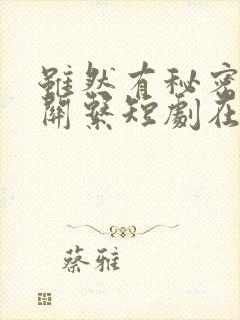 雖然有秘密
開發短劇在
蔡雅